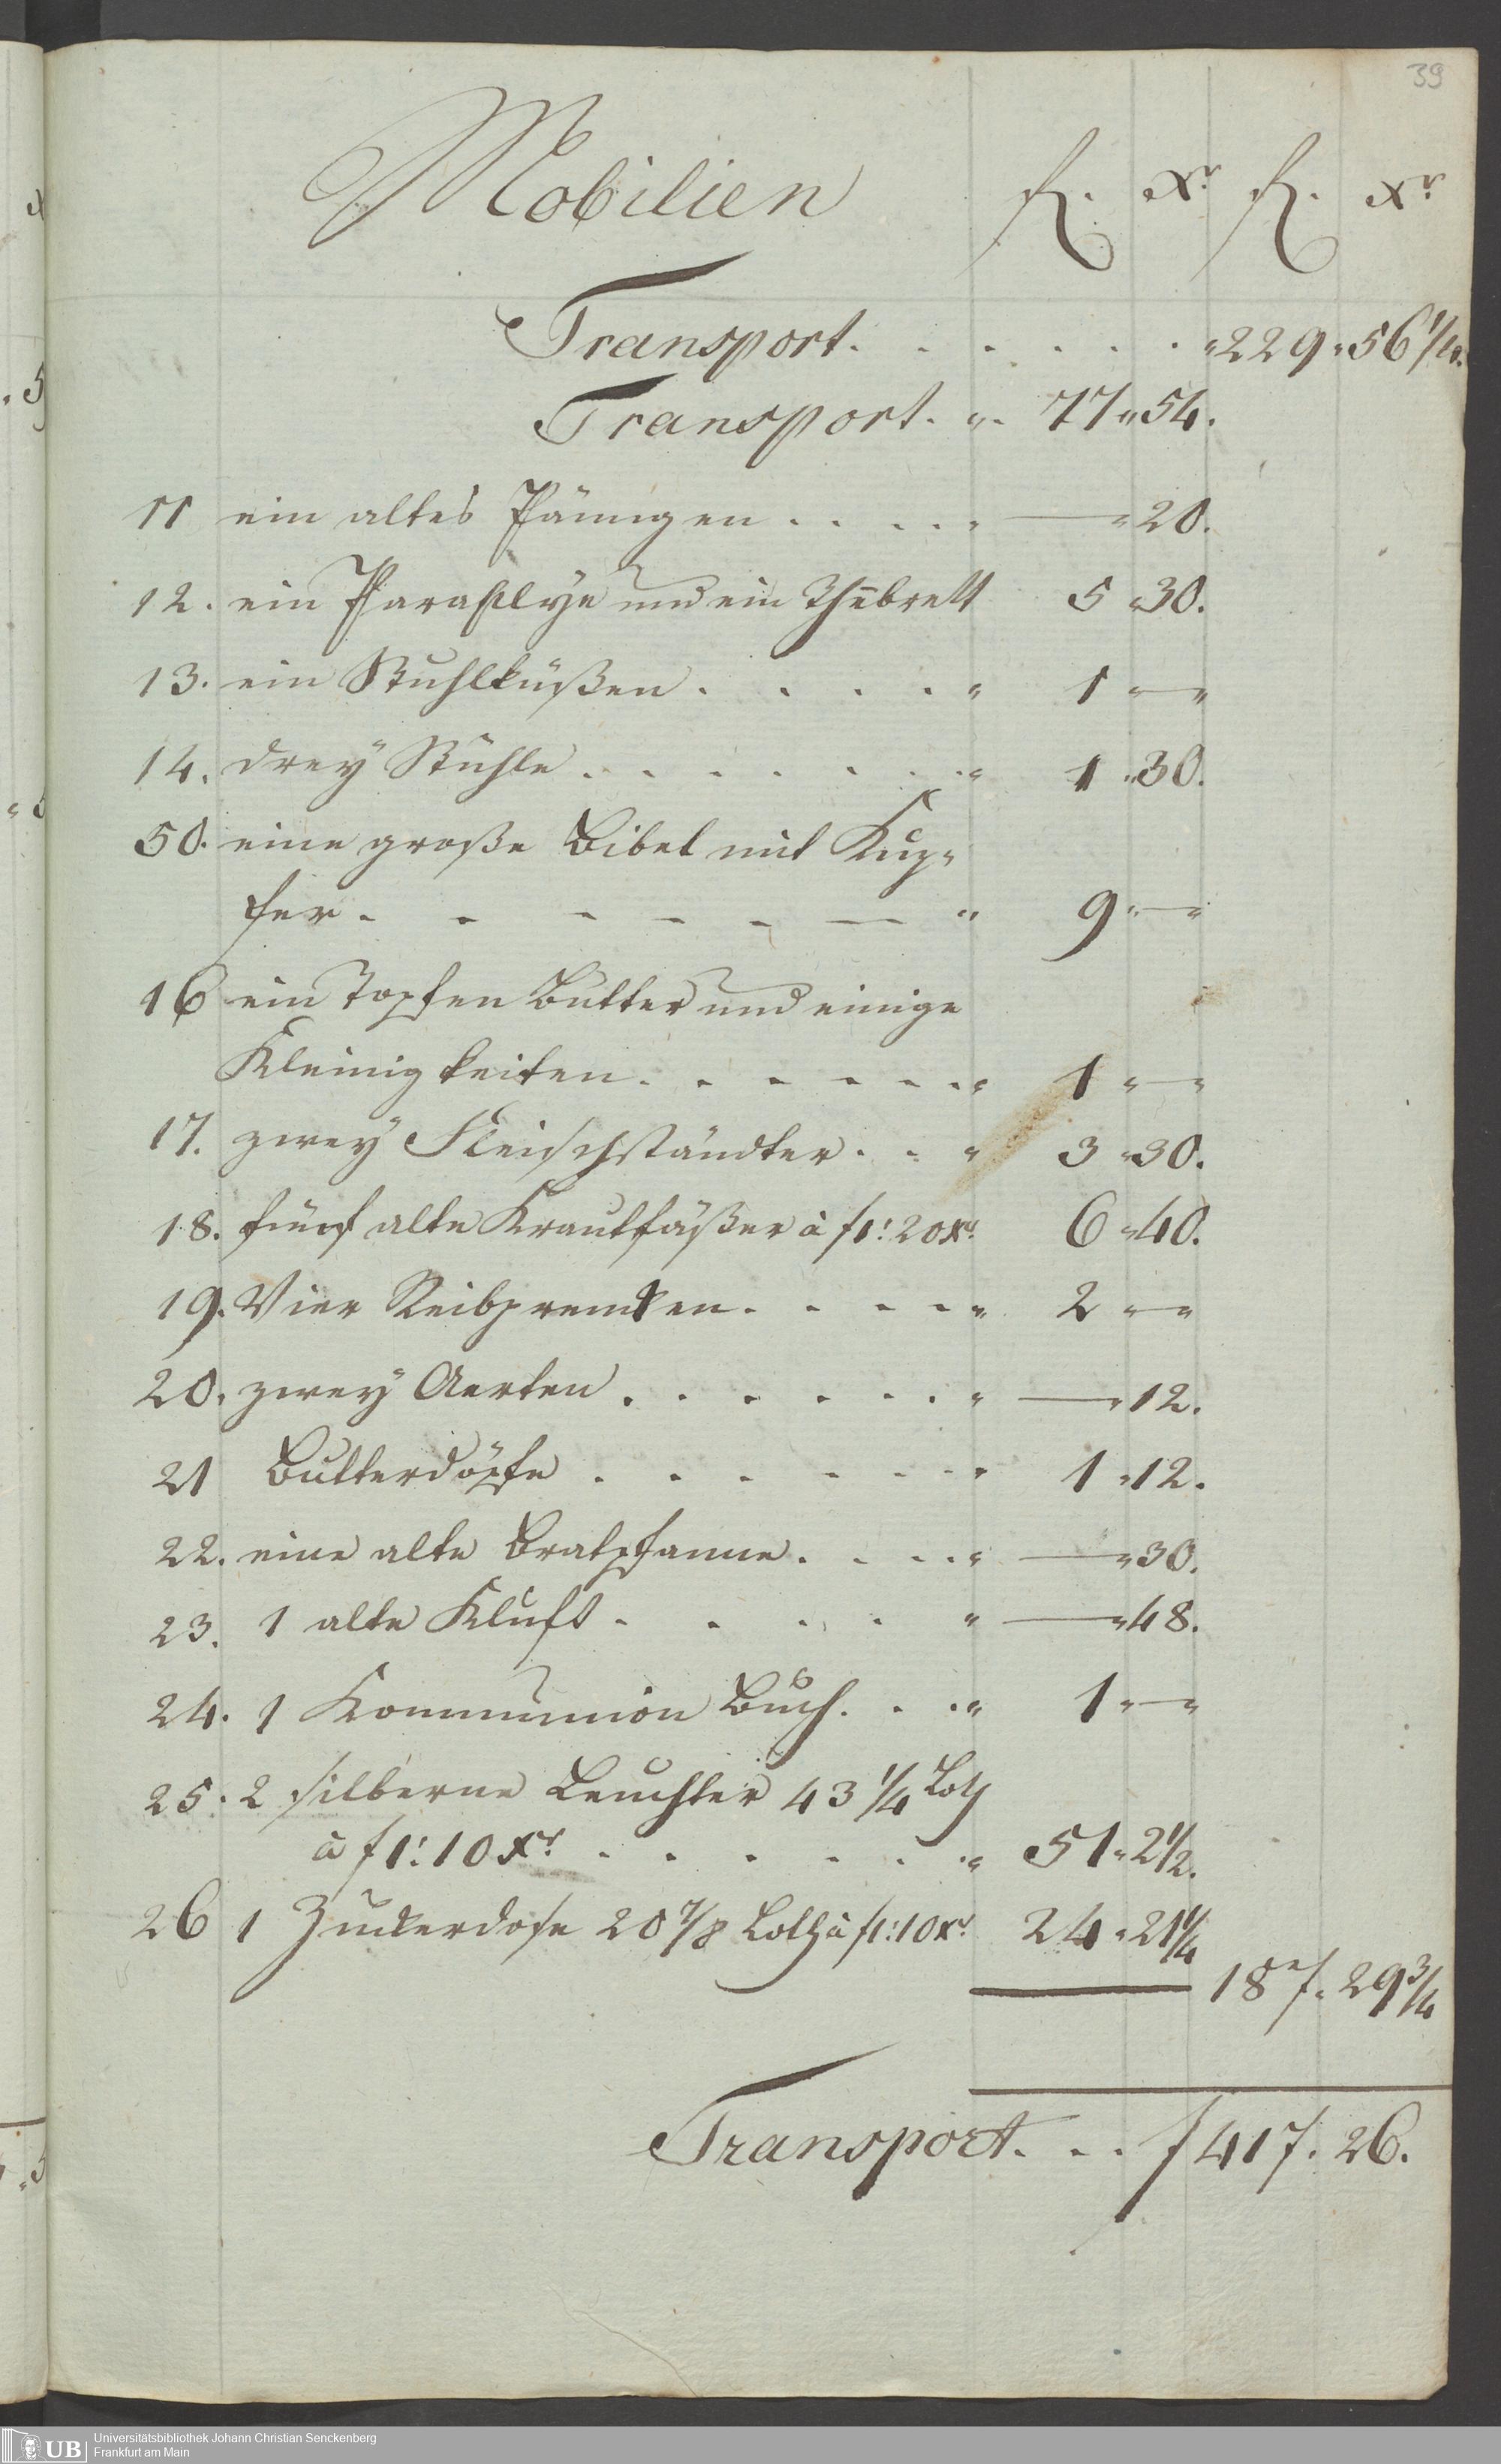 39
Mobilien fl. Xr. fl. Xr.
Transport. . . . . . . " 229 " 56 1/4.
Transport. " . 77 " 54.
11 ein altes Pfänngen . . . . . — " 20.
12. ein Paraplye und ein Theebrett 5 " 30.
13. ein Stuhlküßen . . . . . " 1 " — "
14. drey Stühle . . . . . . . " 1 " 30.
50. eine große Bibel mit Kup-
fer . . . . . — " 9 " — "
16 ein Topfen Butter und einige
Kleinigkeiten . . . . . . . " 1 " — "
17. zwey Fleischständter . . " 3 " 30.
18. fünf alte Krautfäßer à f1: 20 Xr. 6 " 40.
19. Vier . . . . . " 2 " — "
20. zwey . . . . . . " — " 12.
21 Butterdöpfe . . . . . . . 1 " 12.
22. eine alte Bratpfanne . . . . " — " 30.
23. 1 alte Kluft . . . . " — " 48.
24. 1 Kommunion Buch . . . " 1 " — "
25. 2 silberne Leuchter 43 1/4 Loth
à f 1: 10 Xr. . . . . . . . " 51 " 2 1/2.
26 1 Zuckerdose 20 7/8 Loth à f1: 10 Xr. 24 " 21 1/4
187. 29 3/4
Transport. . . f 417. 26.
UB Universitätsbibliothek Johann Christian Senckenberg
Frankfurt am Main